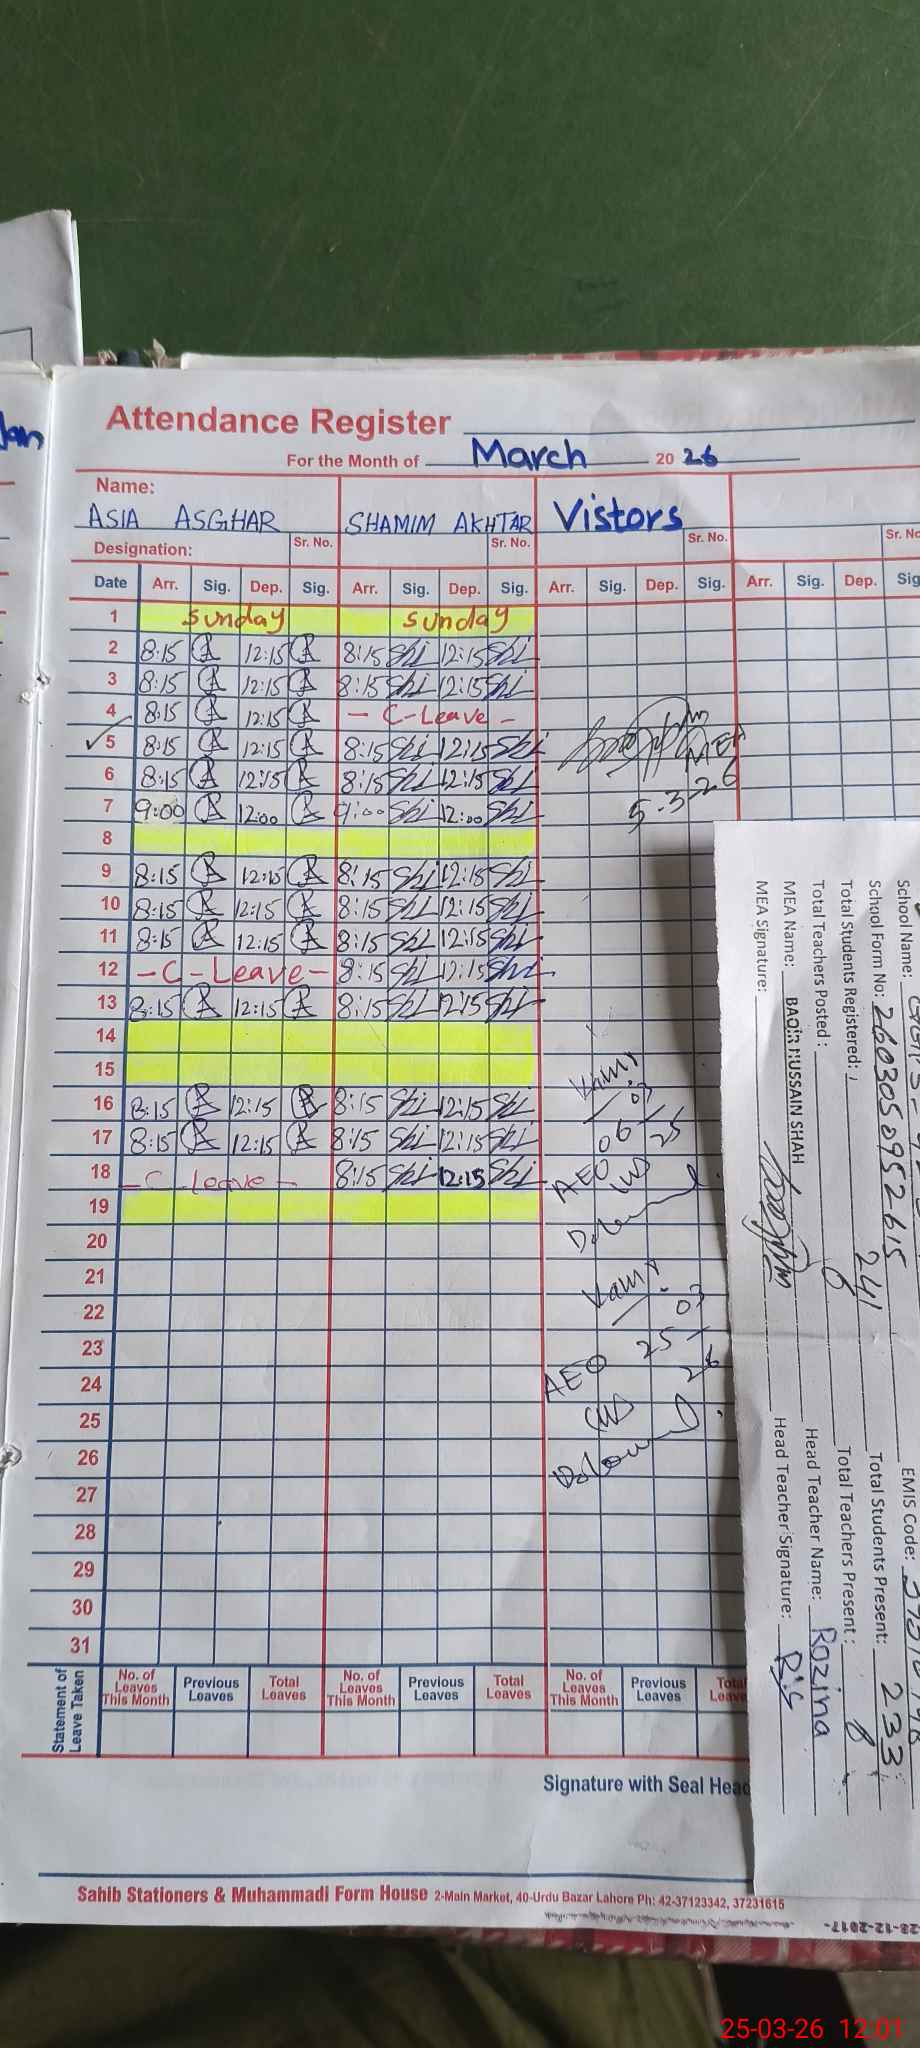 Jan
Attendance Register
For the Month of March 2026
Name:
ASIA ASGHAR SHAMIM AKHTAR Vistors
Designation: Sr. No. Sr. No. Sr. No. Sr. No.
Date Arr. Sig. Dep. Sig. Arr. Sig. Dep. Sig. Arr. Sig. Dep. Sig. Arr. Sig. Dep. Sig
1 Sunday Sunday
2 8:15 A 12:15 A 8:15 Shi 12:15 Shi
3 8:15 A 12:15 A 8:15 Shi 12:15 Shi
4 8:15 A 12:15 A - C-Leave -
5 8:15 A 12:15 A 8:15 Shi 12:15 Shi MEA
6 8:15 A 12:15 A 8:15 Shi 12:15 Shi 5-3-26
7 9:00 A 12:00 A 9:00 Shi 12:00 Shi
8
9 8:15 A 12:15 A 8:15 Shi 12:15 Shi
10 8:15 A 12:15 A 8:15 Shi 12:15 Shi
11 8:15 A 12:15 A 8:15 Shi 12:15 Shi
12 - C - Leave - 8:15 Shi 12:15 Shi
13 8:15 A 12:15 A 8:15 Shi 12:15 Shi
14
15
16 8:15 A 12:15 A 8:15 Shi 12:15 Shi
17 8:15 A 12:15 A 8:15 Shi 12:15 Shi
18 - C - Leave - 8:15 Shi 12:15 Shi
19
20
21
22
23
24
25
26
27
28
29
30
31
03
06 25
AEO
03
25
26
AEO
Statement of Leave Taken
No. of Leaves This Month Previous Leaves Total Leaves No. of Leaves This Month Previous Leaves Total Leaves No. of Leaves This Month Previous Leaves Total
Signature with Seal Head
Sahib Stationers & Muhammadi Form House 2-Main Market, 40-Urdu Bazar Lahore Ph: 42-37123342, 37231615
School Name:
School Form No: 2603050952615 EMIS Code:
Total Students Registered: 241 Total Students Present: 233
Total Teachers Posted : 6 Total Teachers Present : 6
MEA Name: BAQIR HUSSAIN SHAH Head Teacher Name: Rozina
MEA Signature: Head Teacher Signature:
28-12-2017
25-03-26 12:01